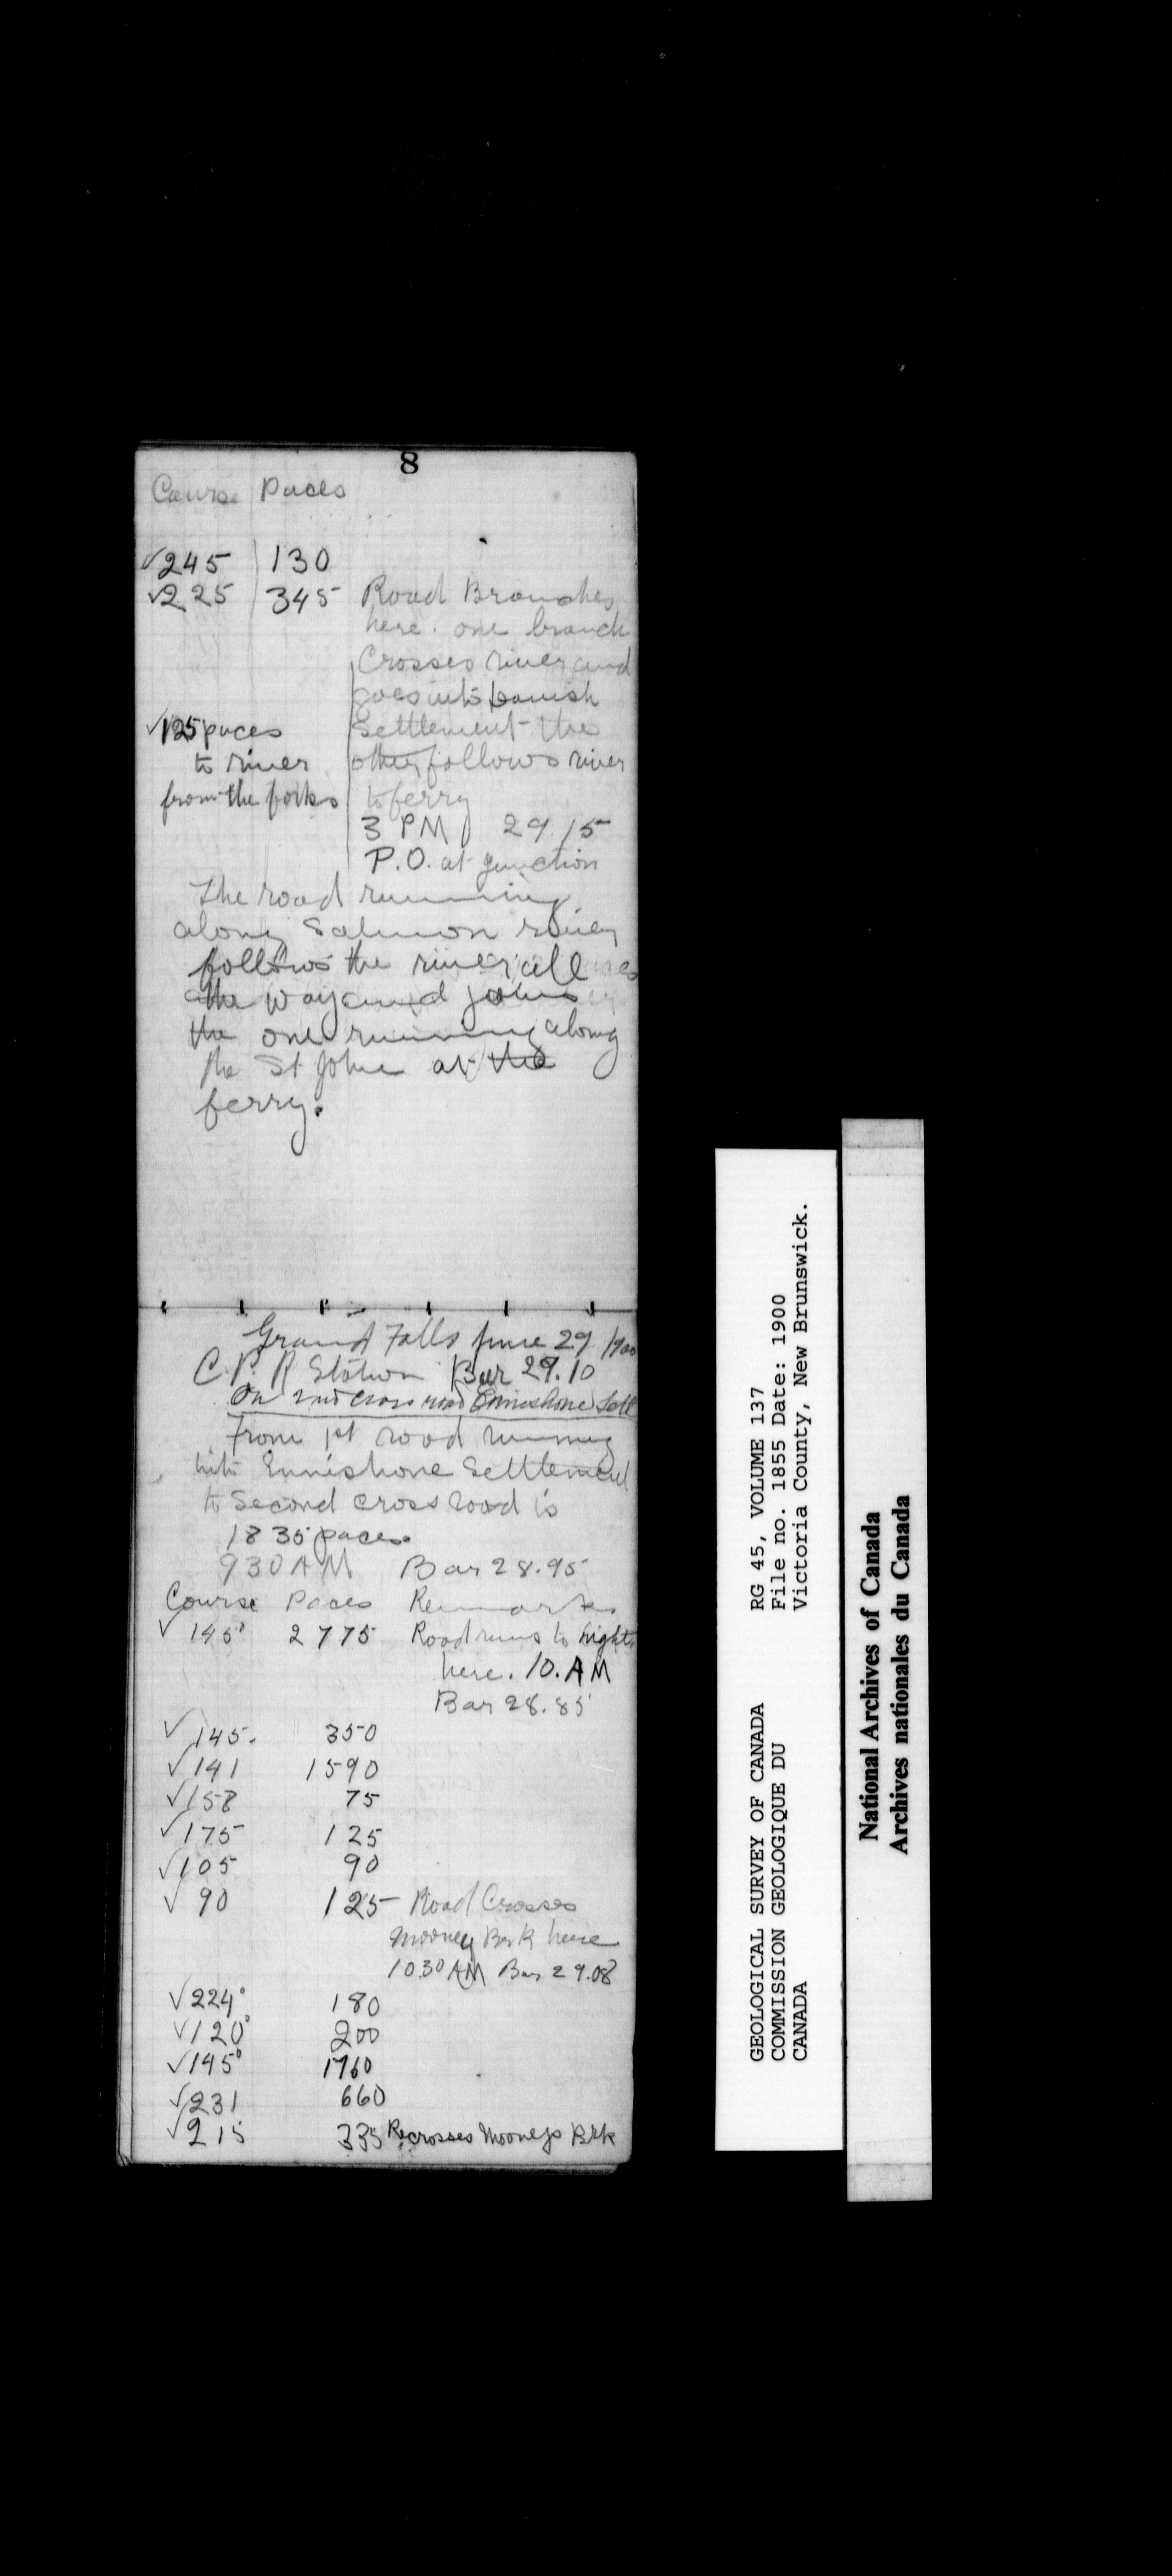 8
Course Paces
✓245 130
✓225 345 Road Branches
here. one branch
crosses river and
goes into Danish
✓125 paces Settlement the
to river other follows river
from the forks to ferry
3 PM 29.15
P.O. at junction
The road running
along Salmon river
follows the river all
the way and joins
the one running along
the St John at the
ferry.
Grand Falls June 29 1900
C.P.R Station Bar 29.10
On 2nd cross road Ennishone Sett
From 1st road running
into Ennishone Settlement
to Second cross road is
1835 paces.
930 AM Bar 28.95
Course Paces Remarks
✓145° 2775 Road runs to right
here. 10. AM
Bar 28.85
✓145. 350
✓141 1590
✓158 75
✓175 125
✓105 90
✓90 125 Road Crosses
Mooney Brk here
1030 AM Bar 29.08
✓224° 180
✓120° 200
✓145° 1760
✓231 660
✓215 335 Recrosses Mooneys Brk
GEOLOGICAL SURVEY OF CANADA RG 45, VOLUME 137
COMMISSION GEOLOGIQUE DU File no. 1855 Date: 1900
CANADA Victoria County, New Brunswick.
National Archives of Canada
Archives nationales du Canada